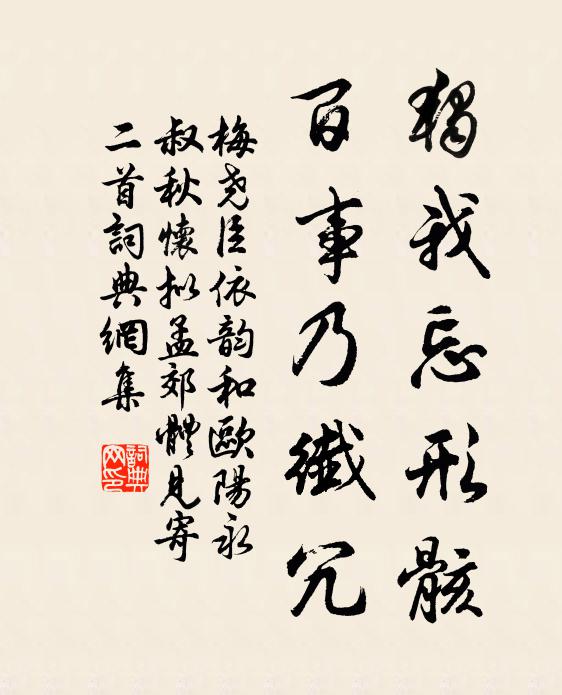 獨我忘形骸
百事乃纖冗
梅尧臣依韵和歐陽永
叔秋懷拟孟郊體見寄
二首詞典網集
詞典網印